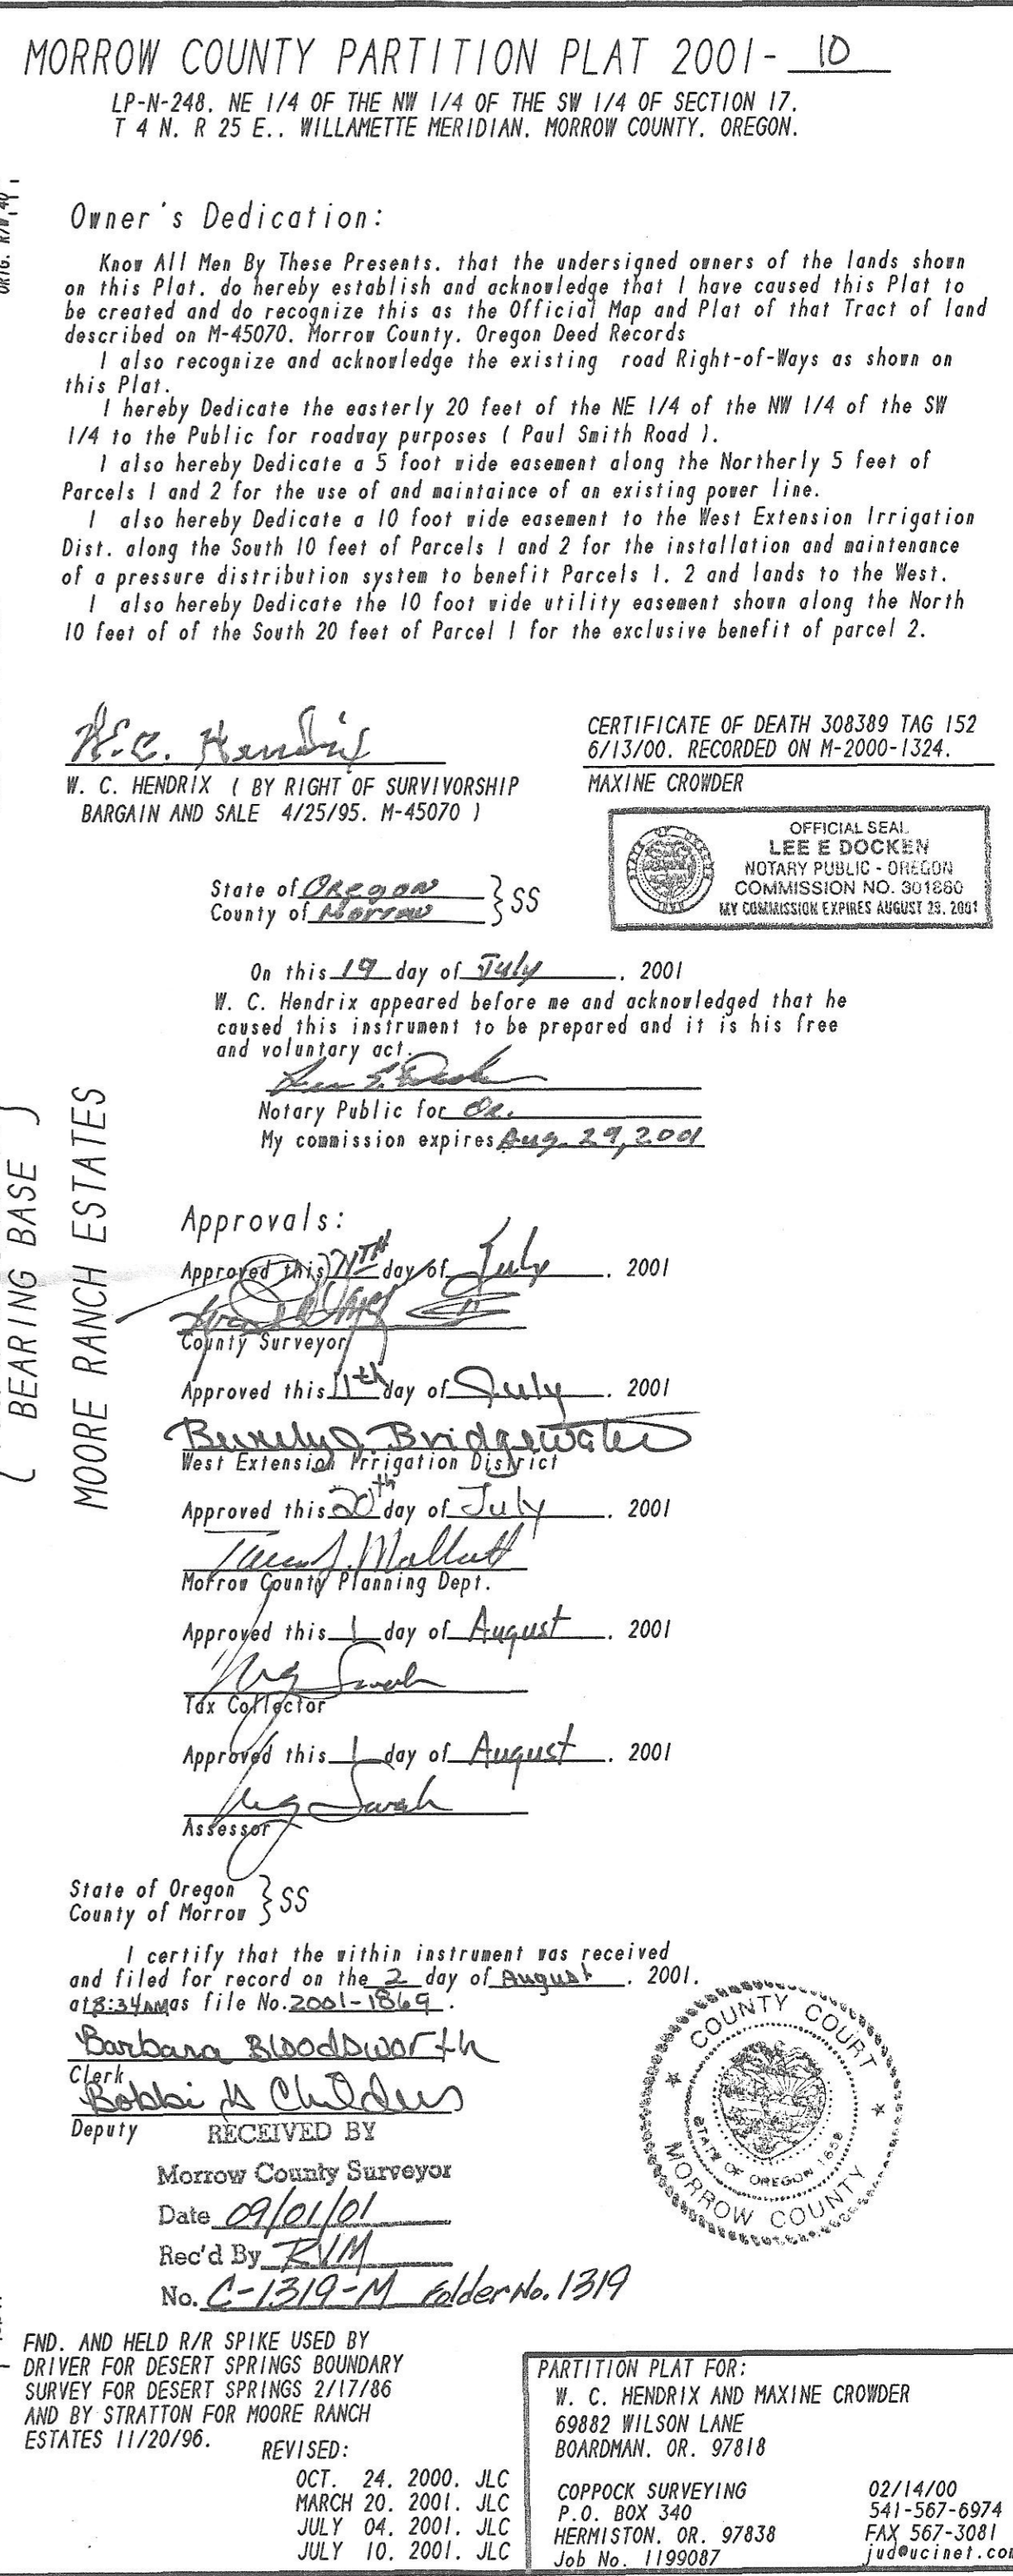 MORROW COUNTY PARTITION PLAT 2001- 10
LP-N-248. NE 1/4 OF THE NW 1/4 OF THE SW 1/4 OF SECTION 17.
T 4 N. R 25 E.. WILLAMETTE MERIDIAN. MORROW COUNTY. OREGON.
ORIG. R/W 40
Owner's Dedication:
Know All Men By These Presents. that the undersigned owners of the lands shown
on this Plat. do hereby establish and acknowledge that I have caused this Plat to
be created and do recognize this as the Official Map and Plat of that Tract of land
described on M-45070. Morrow County. Oregon Deed Records
I also recognize and acknowledge the existing road Right-of-Ways as shown on
this Plat.
I hereby Dedicate the easterly 20 feet of the NE 1/4 of the NW 1/4 of the SW
1/4 to the Public for roadway purposes ( Paul Smith Road ).
I also hereby Dedicate a 5 foot wide easement along the Northerly 5 feet of
Parcels 1 and 2 for the use of and maintaince of an existing power line.
I also hereby Dedicate a 10 foot wide easement to the West Extension Irrigation
Dist. along the South 10 feet of Parcels 1 and 2 for the installation and maintenance
of a pressure distribution system to benefit Parcels 1. 2 and lands to the West.
I also hereby Dedicate the 10 foot wide utility easement shown along the North
10 feet of of the South 20 feet of Parcel 1 for the exclusive benefit of parcel 2.
W.C. Hendrix
W. C. HENDRIX ( BY RIGHT OF SURVIVORSHIP
BARGAIN AND SALE 4/25/95. M-45070 )
CERTIFICATE OF DEATH 308389 TAG 152
6/13/00. RECORDED ON M-2000-1324.
MAXINE CROWDER
OFFICIAL SEAL
LEE E DOCKEN
NOTARY PUBLIC - OREGON
COMMISSION NO. 301860
MY COMMISSION EXPIRES AUGUST 29, 2001
State of Oregon } SS
County of Morrow
On this 19 day of July . 2001
W. C. Hendrix appeared before me and acknowledged that he
caused this instrument to be prepared and it is his free
and voluntary act.
Lee E. Docken
Notary Public for OR.
My commission expires Aug. 29, 2001
( BEARING BASE )
MOORE RANCH ESTATES
Approvals:
Approved this day of July . 2001
County Surveyor
Approved this 11th day of July . 2001
Beverly Bridgewater
West Extension Irrigation District
Approved this 20th day of July . 2001
Mallett
Morrow County Planning Dept.
Approved this 1 day of August . 2001
Tax Collector
Approved this 1 day of August . 2001
Assessor
State of Oregon } SS
County of Morrow
I certify that the within instrument was received
and filed for record on the 2 day of August . 2001.
at 8:34 AM as file No. 2001-1869 .
Barbara Bloodsworth
Clerk
Bobbi A Childers
Deputy
COUNTY COURT
STATE OF OREGON 1859
MORROW COUNTY
RECEIVED BY
Morrow County Surveyor
Date 09/01/01
Rec'd By RVM
No. C-1319-M Folder No. 1319
FND. AND HELD R/R SPIKE USED BY
DRIVER FOR DESERT SPRINGS BOUNDARY
SURVEY FOR DESERT SPRINGS 2/17/86
AND BY STRATTON FOR MOORE RANCH
ESTATES 11/20/96.
REVISED:
OCT. 24. 2000. JLC
MARCH 20. 2001. JLC
JULY 04. 2001. JLC
JULY 10. 2001. JLC
PARTITION PLAT FOR:
W. C. HENDRIX AND MAXINE CROWDER
69882 WILSON LANE
BOARDMAN. OR. 97818
COPPOCK SURVEYING 02/14/00
P.O. BOX 340 541-567-6974
HERMISTON. OR. 97838 FAX 567-3081
Job No. 1199087 jud@ucinet.com